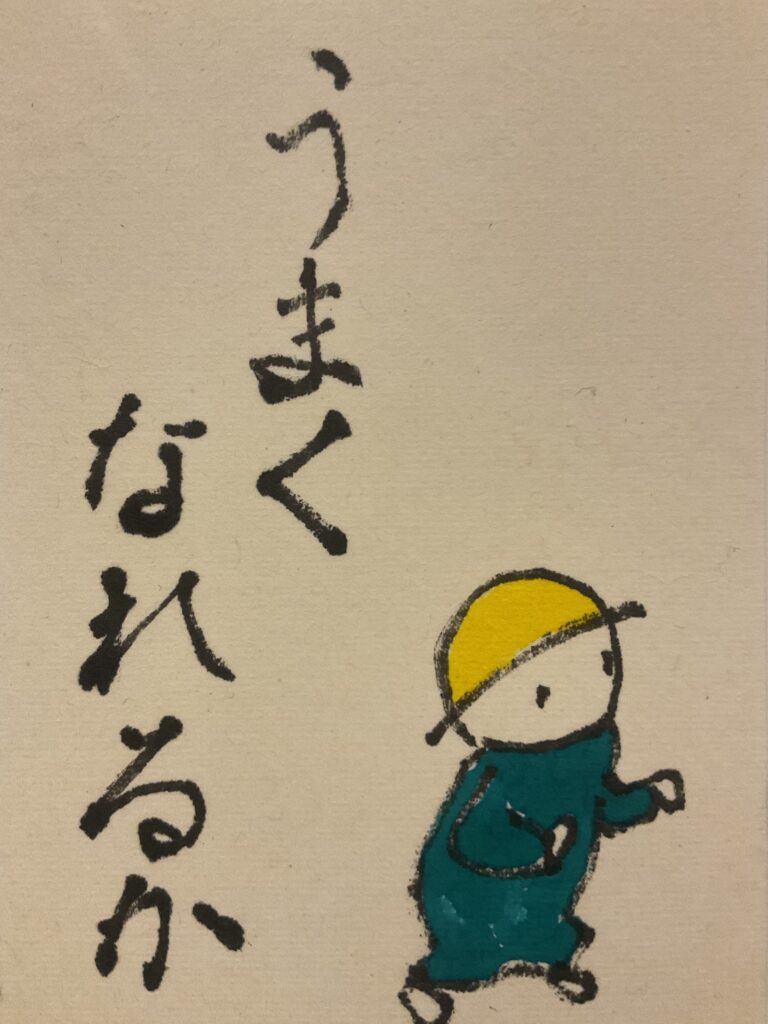 うまく
なれるか